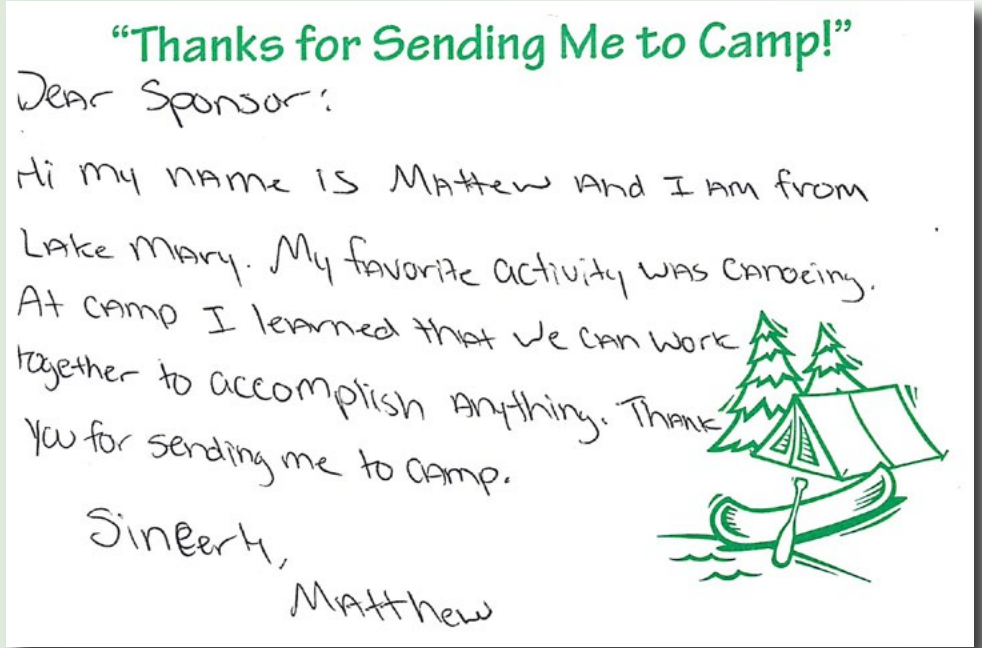 “Thanks for Sending Me to Camp!”
Dear Sponsor:
Hi my name is Mattew And I Am from
Lake Mary. My favorite activity was canoeing.
At camp I learned that we can work
together to accomplish Anything. Thank
you for sending me to camp.
Sincerly,
Matthew